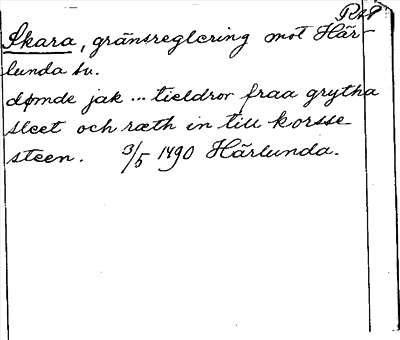 RAP
Skara, gränsreglering mot Här-
lunda sn.
dømde jak ... tieldror fraa grytha
sleet och ræth in till korsse-
steen. 3/5 1490 Härlunda.